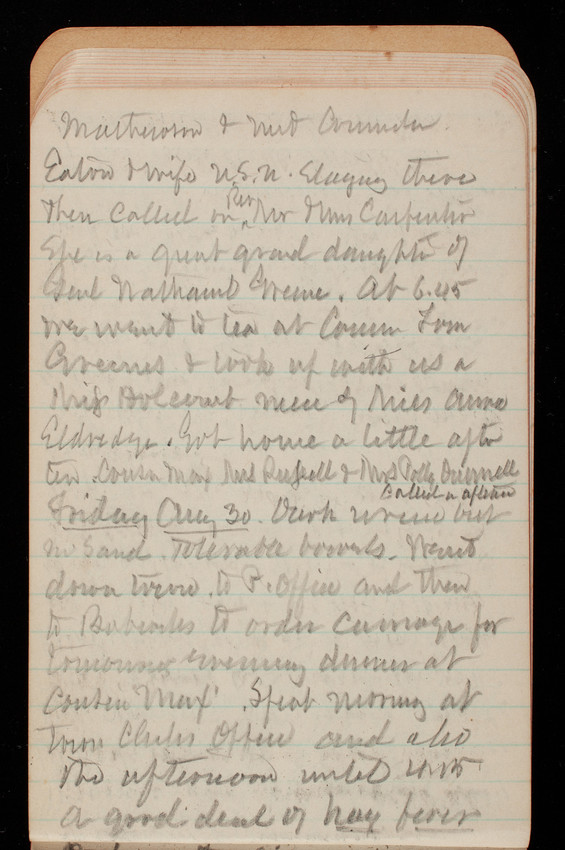 & met Commander
Eaton & wife U.S.N. Staying there
Then called on Rev Mr & Mrs Carpenter
She is a great grand daughter of
Genl Nathanael Greene. At 6.45
we went to tea at Cousin Tom
Greenes & took up with us a
Miss niece of Miss Anna
Eldredge. Got home a little after
ten. Cousin Max Mrs Russell & Mrs Polly
Called in afternoon
Friday Aug 30. Dark urine but
no Sand. Tolerable bowels. Went
down town to P. Office and then
to Babcocks to order carriage for
tomorrows evening dinner at
Cousin Max'. Spent morning at
Town Clerks Office and also
the afternoon until 4.15
A good deal of hay fever